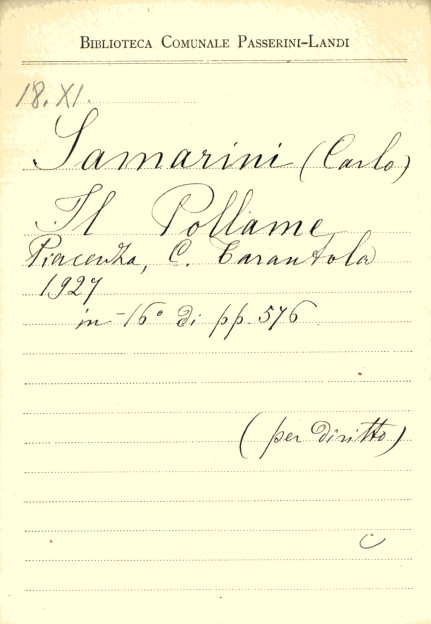 BIBLIOTECA COMUNALE PASSERINI-LANDI
18. XI.
Samarini (Carlo)
Il Pollame
Piacenza, C. Tarantola
1927
in-16° di pp. 576
(per diritto)
C